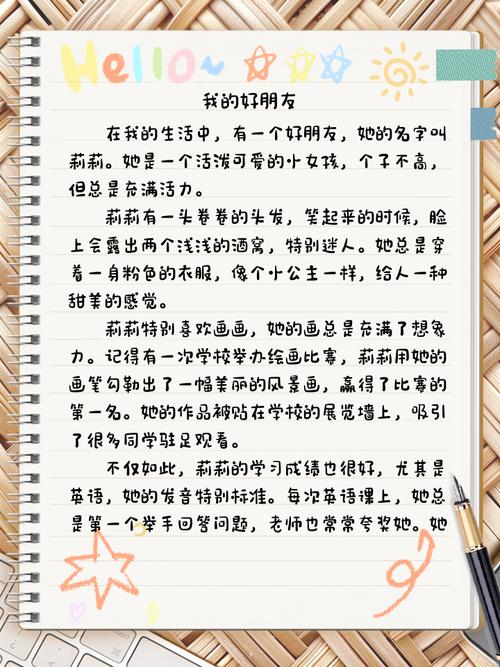 Hello~
我的好朋友
在我的生活中，有一个好朋友，她的名字叫
莉莉。她是一个活泼可爱的小女孩，个子不高，
但总是充满活力。
莉莉有一头卷卷的头发，笑起来的时候，脸
上会露出两个浅浅的酒窝，特别迷人。她总是穿
着一身粉色的衣服，像个小公主一样，给人一种
甜美的感觉。
莉莉特别喜欢画画，她的画总是充满了想象
力。记得有一次学校举办绘画比赛，莉莉用她的
画笔勾勒出了一幅美丽的风景画，赢得了比赛的
第一名。她的作品被贴在学校的展览墙上，吸引
了很多同学驻足观看。
不仅如此，莉莉的学习成绩也很好，尤其是
英语，她的发音特别标准。每次英语课上，她总
是第一个举手回答问题，老师也常常夸奖她。她